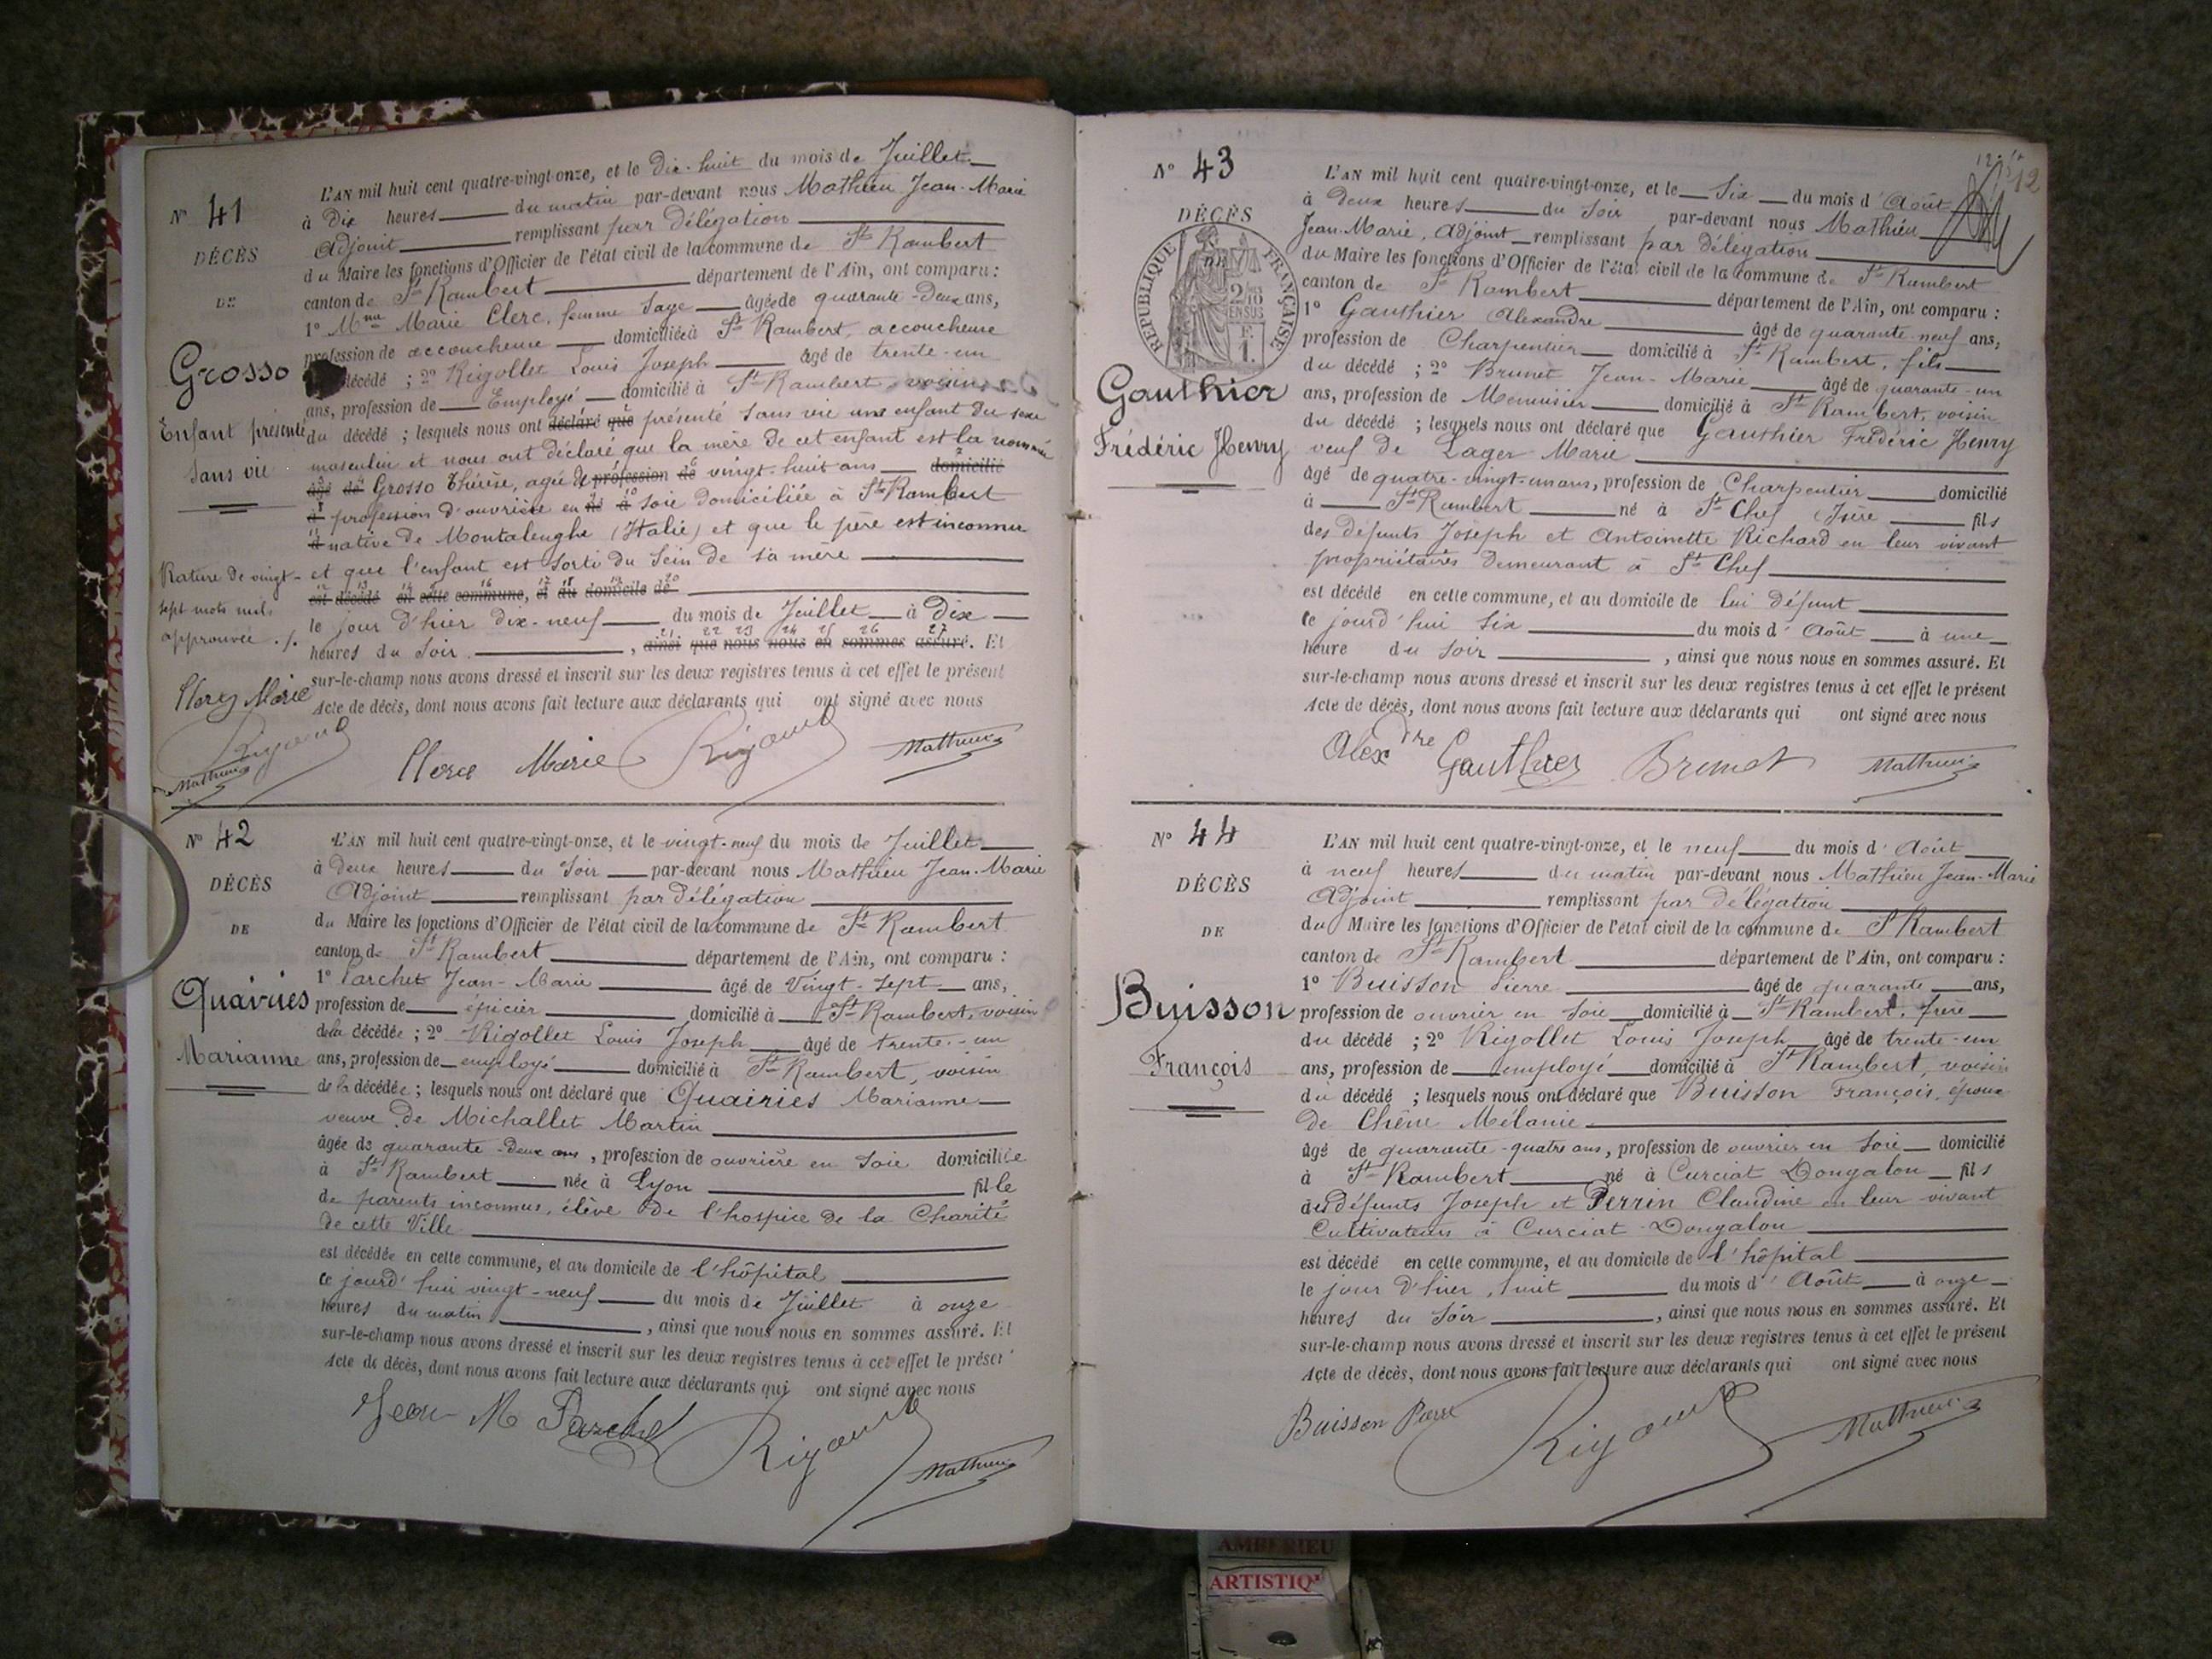 N° 41
DÉCÈS
DE
Grosso
Enfant présenté
sans vie
Rature de vingt-
sept mots nuls
approuvée ./.
L'AN mil huit cent quatre-vingt-onze, et le dix-huit du mois de Juillet
à dix heures du matin par-devant nous Mathieu Jean-Marie
Adjoint remplissant par délégation
du Maire les fonctions d'Officier de l'état civil de la commune de St Rambert
canton de St Rambert département de l'Ain, ont comparu :
1° Mme Marie Clerc, femme Sage âgée de quarante-deux ans,
profession de accoucheuse domiciliée à St Rambert, accoucheuse
décédé ; 2° Rigollet Louis Joseph âgé de trente-un
ans, profession de Employé domicilié à St Rambert, voisin
du décédé ; lesquels nous ont déclaré que présenté sans vie une enfant du sexe
masculin et nous ont déclaré que la mère de cet enfant est la nommée
âgé de Grosso Thérèse, agée de profession de vingt-huit ans domicilié
à profession d'ouvrière en né à soie domiciliée à St Rambert
à native de Montalenghe (Italie) et que le père est inconnu
et que l'enfant est sorti du sein de sa mère
est décédé en cette commune, et au domicile de
le jour d'hier dix-neuf du mois de Juillet à dix
heures du soir , ainsi que nous nous en sommes assuré. Et
sur-le-champ nous avons dressé et inscrit sur les deux registres tenus à cet effet le présent
Acte de décès, dont nous avons fait lecture aux déclarants qui ont signé avec nous
Clerc Marie
Mathieu
Clerc Marie Mathieu
N° 42
DÉCÈS
DE
Quairies
Marianne
L'AN mil huit cent quatre-vingt-onze, et le vingt-neuf du mois de Juillet
à deux heures du soir par-devant nous Mathieu Jean-Marie
Adjoint remplissant par délégation
du Maire les fonctions d'Officier de l'état civil de la commune de St Rambert
canton de St Rambert département de l'Ain, ont comparu :
1° Parchet Jean-Marie âgé de vingt-sept ans,
profession de épicier domicilié à St Rambert, voisin
de la décédée ; 2° Rigollet Louis Joseph âgé de trente-un
ans, profession de employé domicilié à St Rambert, voisin
de la décédée ; lesquels nous ont déclaré que Quairies Marianne
veuve de Michallet Martin
âgée de quarante-deux ans, profession de ouvrière en soie domiciliée
à St Rambert née à Lyon fille
de parents inconnus, élève de l'hospice de la Charité
de cette Ville
est décédée en cette commune, et au domicile de l'hôpital
ce jourd'hui vingt-neuf du mois de Juillet à onze
heures du matin , ainsi que nous nous en sommes assuré. Et
sur-le-champ nous avons dressé et inscrit sur les deux registres tenus à cet effet le présent
Acte de décès, dont nous avons fait lecture aux déclarants qui ont signé avec nous
Jean M Parchet Mathieu
12
N° 43
DÉCÈS
RÉPUBLIQUE FRANÇAISE
2/10 EN SUS
1 F.
Gauthier
Frédéric Henry
L'AN mil huit cent quatre-vingt-onze, et le six du mois d'Août
à deux heures du soir par-devant nous Mathieu
Jean-Marie, Adjoint remplissant par délégation
du Maire les fonctions d'Officier de l'état civil de la commune de St Rambert
canton de St Rambert département de l'Ain, ont comparu :
1° Gauthier Alexandre âgé de quarante-neuf ans,
profession de Charpentier domicilié à St Rambert, fils
du décédé ; 2° Brunet Jean-Marie âgé de quarante-un
ans, profession de Menuisier domicilié à St Rambert, voisin
du décédé ; lesquels nous ont déclaré que Gauthier Frédéric Henry
veuf de Lager Marie
âgé de quatre-vingt-un ans, profession de Charpentier domicilié
à St Rambert né à St Chef (Isère fils
des défunts Joseph et Antoinette Richard en leur vivant
propriétaires demeurant à St Chef
est décédé en cette commune, et au domicile de lui défunt
ce jourd'hui six du mois d'Août à une
heure du soir , ainsi que nous nous en sommes assuré. Et
sur-le-champ nous avons dressé et inscrit sur les deux registres tenus à cet effet le présent
Acte de décès, dont nous avons fait lecture aux déclarants qui ont signé avec nous
Alexdre Gauthier Brunet Mathieu
N° 44
DÉCÈS
DE
Buisson
François
L'AN mil huit cent quatre-vingt-onze, et le neuf du mois d'Août
à neuf heures du matin par-devant nous Mathieu Jean-Marie
Adjoint remplissant par délégation
du Maire les fonctions d'Officier de l'état civil de la commune de St Rambert
canton de St Rambert département de l'Ain, ont comparu :
1° Buisson Pierre âgé de quarante ans,
profession de ouvrier en soie domicilié à St Rambert, frère
du décédé ; 2° Rigollet Louis Joseph âgé de trente-un
ans, profession de employé domicilié à St Rambert, voisin
du décédé ; lesquels nous ont déclaré que Buisson François, époux
de Chêne Mélanie
âgé de quarante-quatre ans, profession de ouvrier en soie domicilié
à St Rambert né à Curciat Dongalon fils
des défunts Joseph et Perrin Claudine en leur vivant
Cultivateurs à Curciat-Dongalon
est décédé en cette commune, et au domicile de l'hôpital
le jour d'hier, huit du mois d'Août à onze
heures du soir , ainsi que nous nous en sommes assuré. Et
sur-le-champ nous avons dressé et inscrit sur les deux registres tenus à cet effet le présent
Acte de décès, dont nous avons fait lecture aux déclarants qui ont signé avec nous
Buisson Pierre Mathieu
AMBERIEU
ARTISTIQ